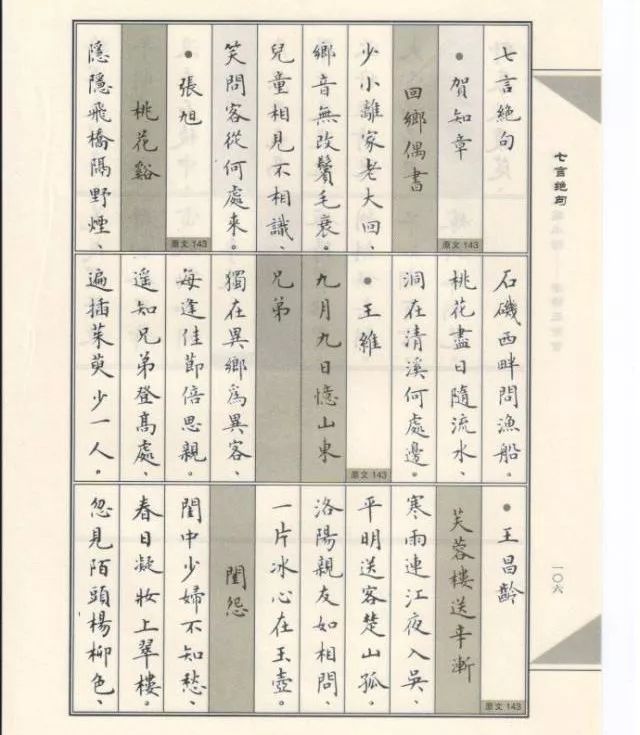 七言絕句
賀知章
原文143
回鄉偶書
少小離家老大回、
鄉音無改鬢毛衰。
兒童相見不相識、
笑問客從何處來。
張旭
原文143
桃花谿
隱隱飛橋隔野煙、
石磯西畔問漁船。
桃花盡日隨流水、
洞在清溪何處邊。
王維
原文143
九月九日憶山東
兄弟
獨在異鄉爲異客、
每逢佳節倍思親。
遥知兄弟登高處、
遍插茱萸少一人。
王昌齡
原文143
芙蓉樓送辛漸
寒雨連江夜入吳、
平明送客楚山孤。
洛陽親友如相問、
一片冰心在玉壺。
閨怨
閨中少婦不知愁、
春日凝妝上翠樓。
忽見陌頭楊柳色、
七言绝句
一〇六